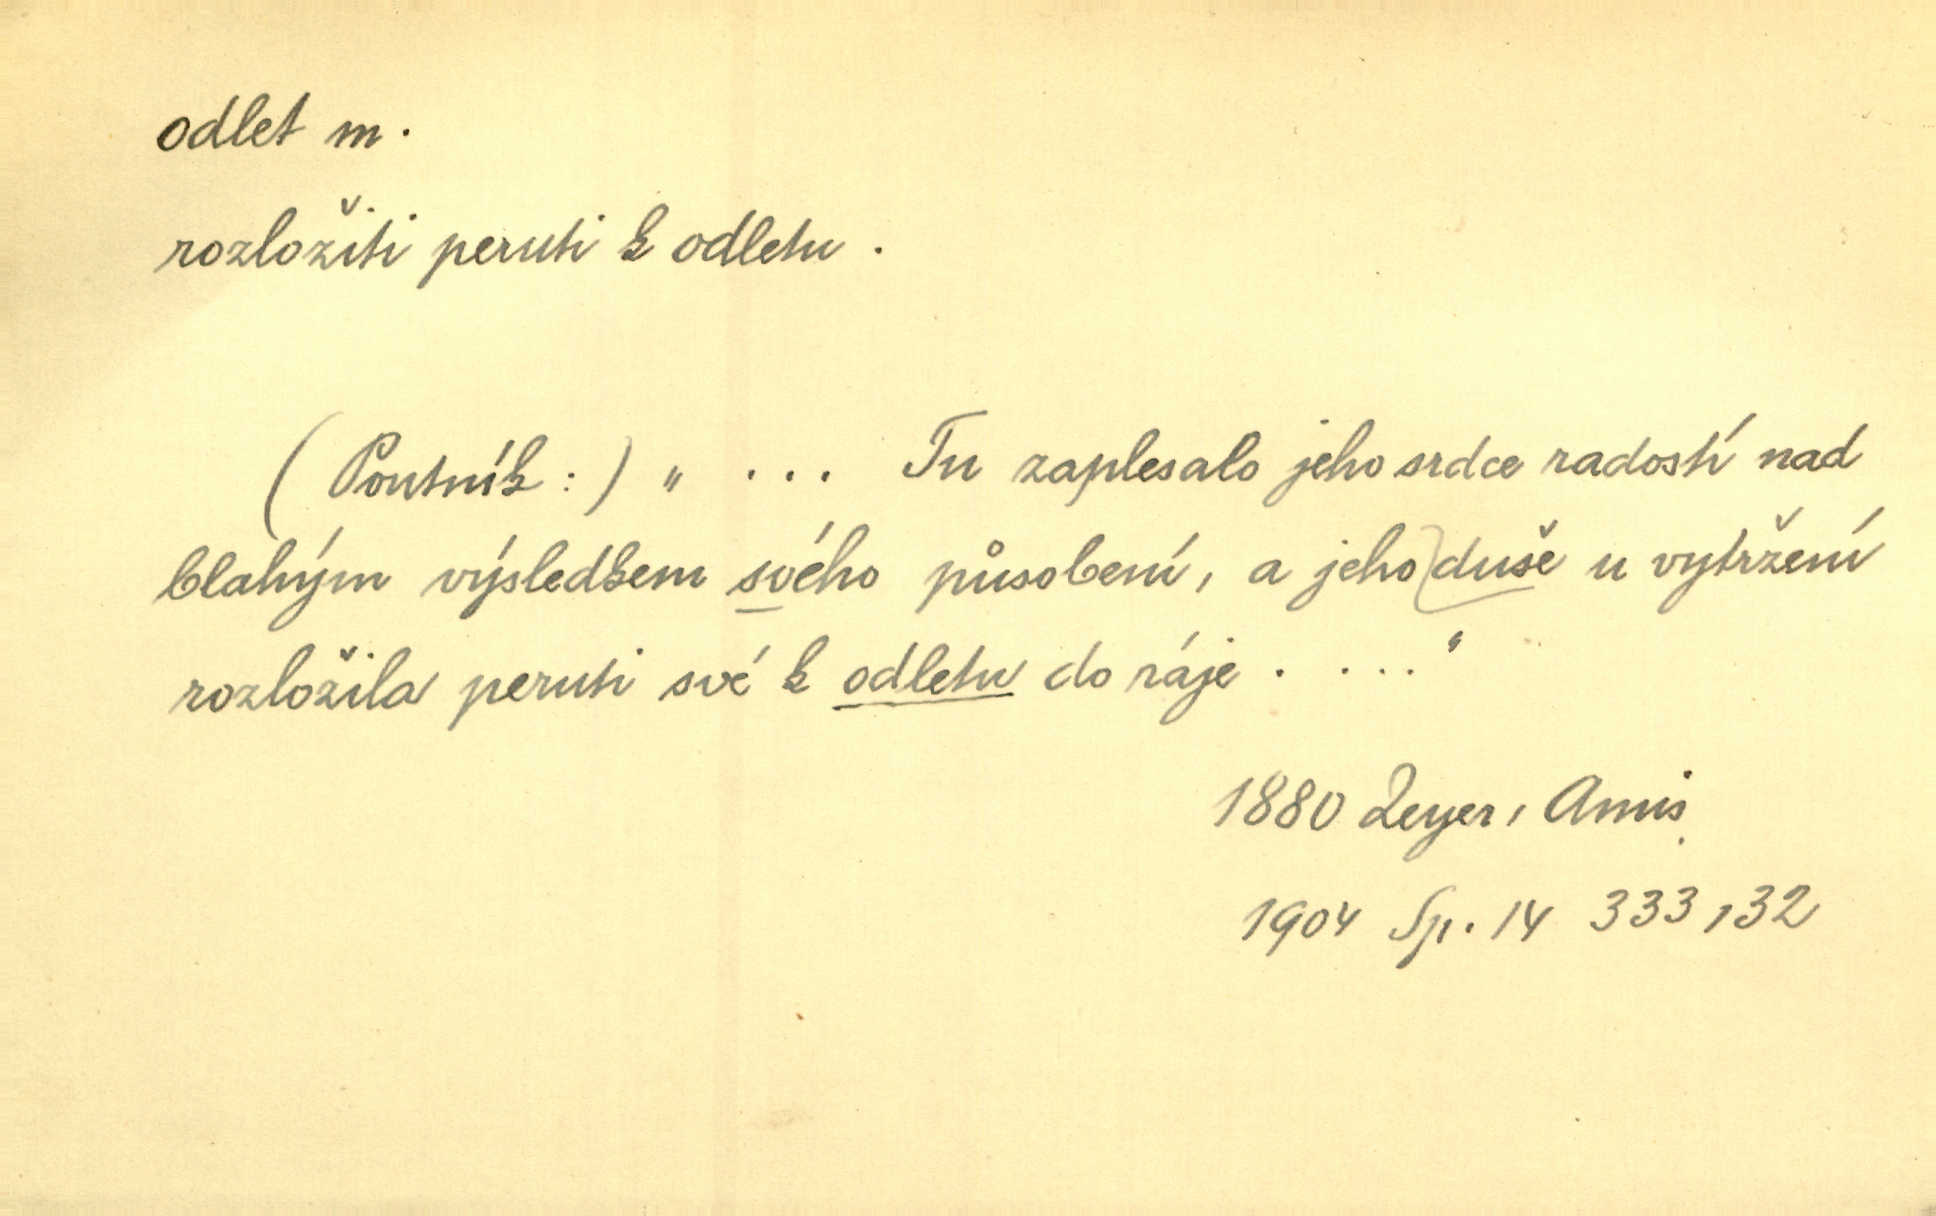 odlet m.
rozložiti peruti k odletu.
(Poutník:) " ... Tu zaplesalo jeho srdce radostí nad
blahým výsledkem svého působení, a jeho duše u vytržení
rozložila peruti své k odletu do ráje. ..."
1880 Zeyer, Amis
1904 Sp. 14 333,32